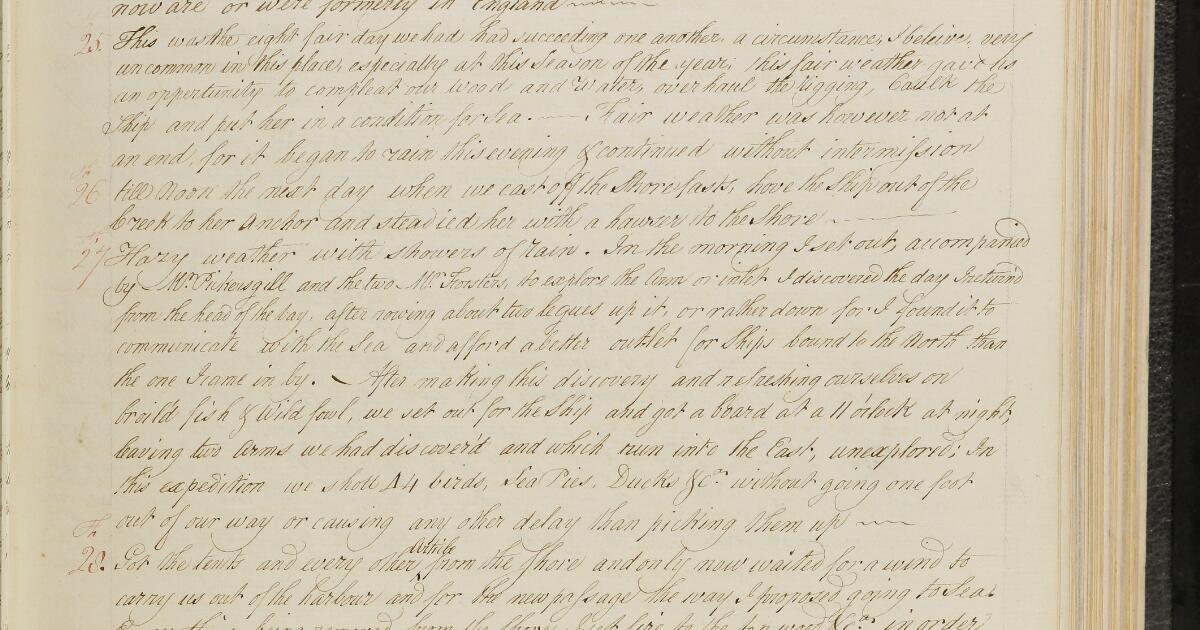 now are or were formerly in England
25. This was the eight fair day we had had succeeding one another, a circumstance, I beleive, very
uncommon in this place, especially at this season of the year; this fair weather gave us
an oppertunity to compleat our wood and Water, over haul the rigging, Caulk the
Ship and put her in a condition for sea. — Fair weather was however not at
an end, for it began to rain this evening & continued without intermission
26 till Noon the next day when we cast off the Shorefasts, hove the Ship out of the
Creek to her Anchor and steadied her with a hawser to the Shore
27 Hazy weather with showers of rain. In the morning I set out, accompanied
by Mr. Pickersgill and the two Mr. Forsters, to explore the Arm or inlet I discovered the day I return'd
from the head of the bay, after rowing about two legues up it, or rather down for I found it to
communicate with the Sea and afford a better outlet for Ships bound to the North than
the one I came in by. — After making this discovery and refreshing ourselves on
broild fish & Wild fowl, we set out for the Ship and got a board at a 11 oclock at night,
leaving two Arms we had discover'd and which run into the East, unexplored; In
this expedition we shott 44 birds, Sea Pies, Ducks &ca. without going one foot
out of our way or causing any other delay than picking them up
Fr.
28. Got the tents and every other Article from the Shore and only now waited for a wind to
carry us out of the harbour and for the new passage the way I proposed going to Sea.
from the shore, I set fire to the top wood &ca. in order